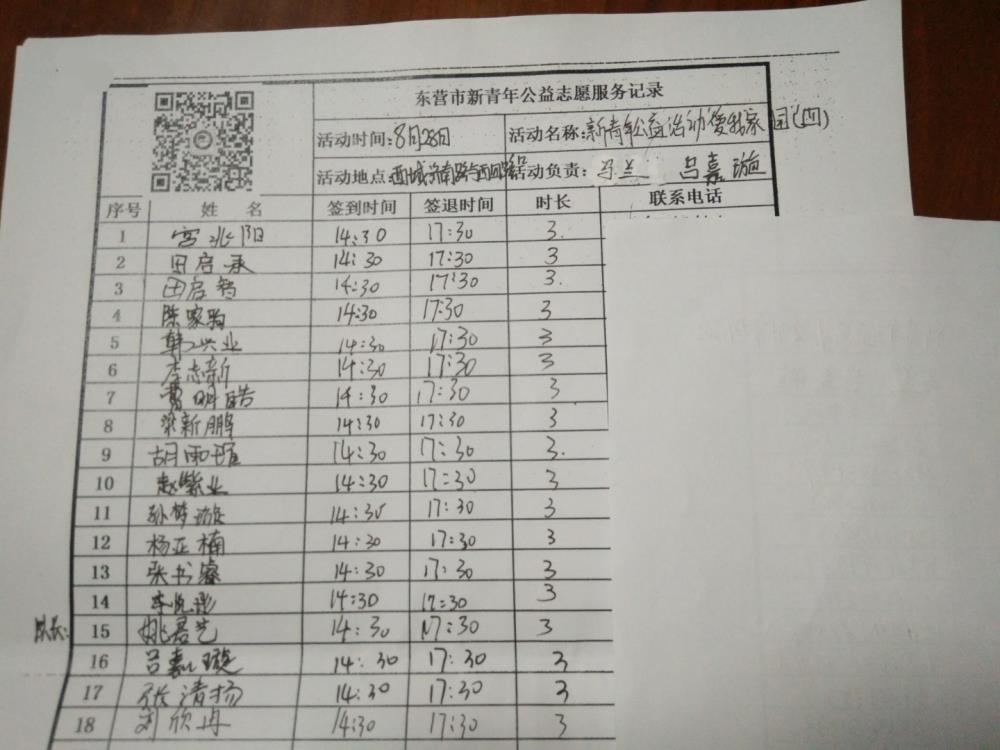 东营市新青年公益志愿服务记录
活动时间:8月28日 活动名称:新青年公益活动爱我家园(四)
活动地点: 活动负责: 马兰 吕嘉璇
序号 姓名 签到时间 签退时间 时长 联系电话
1 宫兆阳 14:30 17:30 3.
2 田启承 14:30 17:30 3
3 田启智 14:30 17:30 3.
4 陈家驹 14:30 17:30 3
5 韩兴业 14:30 17:30 3
6 李志新 14:30 17:30 3
7 曹明皓 14:30 17:30 3
8 梁新鹏 14:30 17:30 3
9 胡雨瑄 14:30 17:30 3.
10 赵紫业 14:30 17:30 3
11 孙梦璇 14:30 17:30 3
12 杨正楠 14:30 17:30 3
13 张书睿 14:30 17:30 3
14 李悦彤 14:30 17:30 3
队长: 15 姚君艺 14:30 17:30 3
16 吕嘉璇 14:30 17:30 3
17 张清扬 14:30 17:30 3
18 刘欣冉 14:30 17:30 3